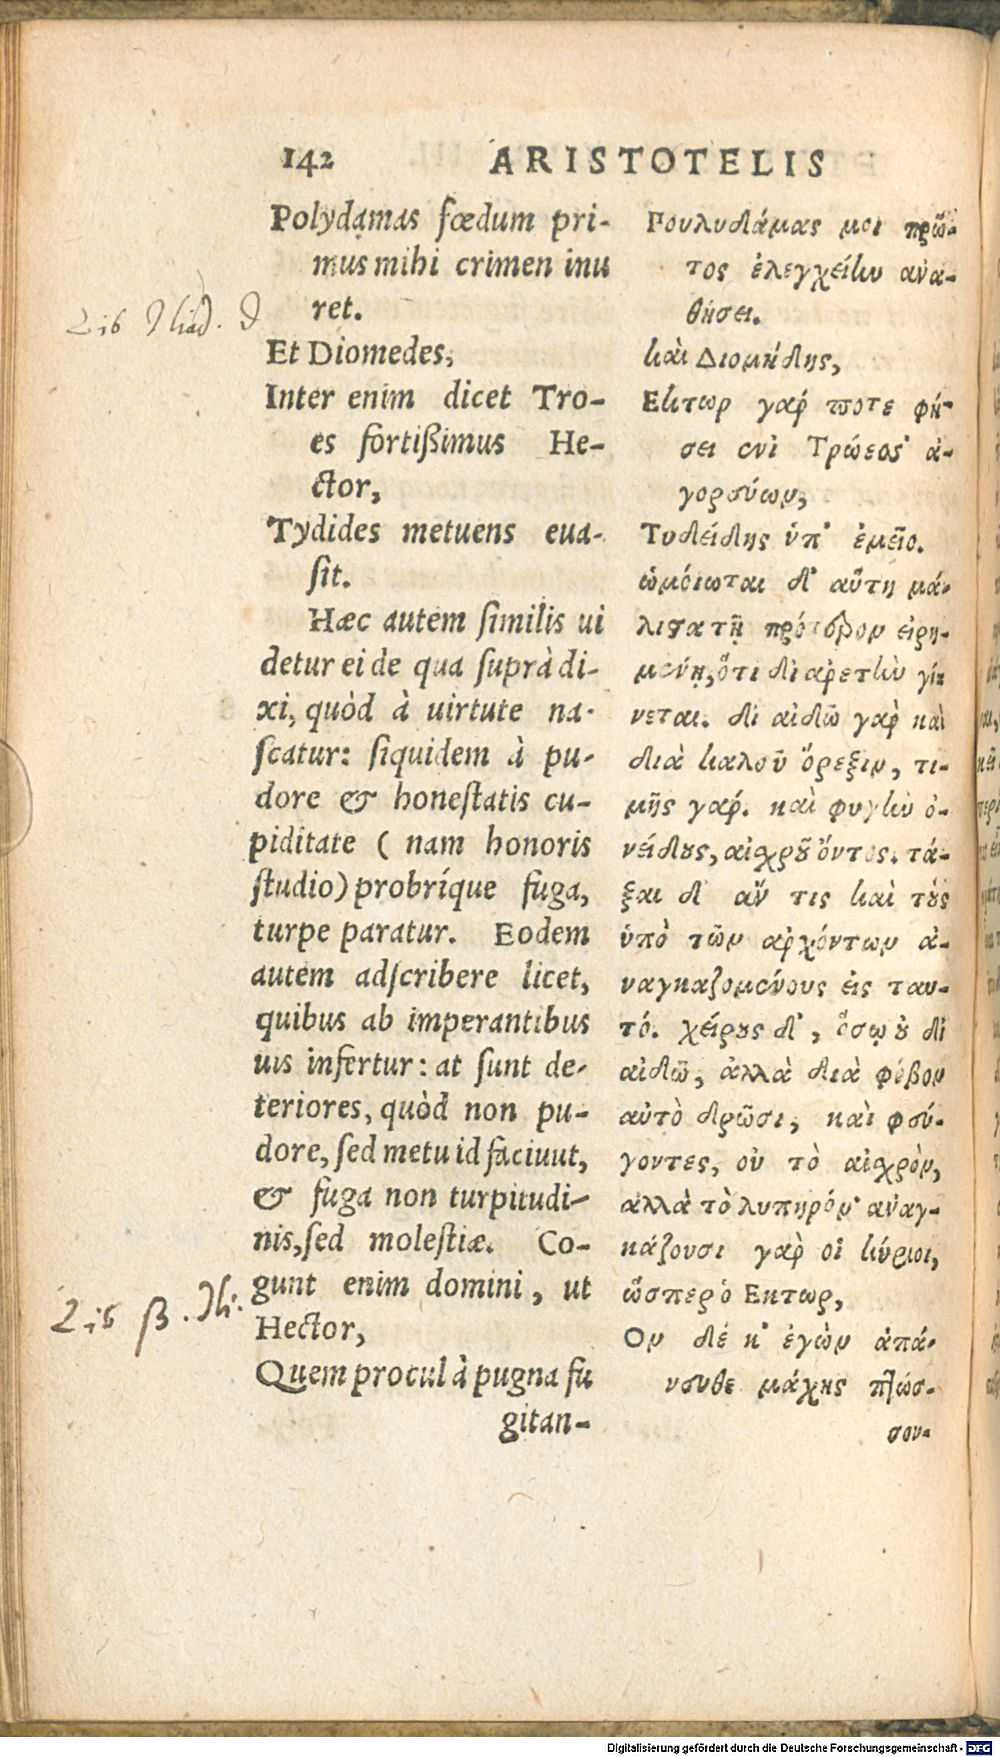 142 ARISTOTELIS
Polydamas fœdum pri-
mus mihi crimen inu
ret.
Et Diomedes,
Inter enim dicet Tro-
es fortißimus He-
ctor,
Tydides metuens eua-
sit.
Hæc autem similis ui
detur ei de qua suprà di-
xi, quòd à uirtute na-
scatur: siquidem à pu-
dore & honestatis cu-
piditate ( nam honoris
studio) probríque fuga,
turpe paratur. Eodem
autem adscribere licet,
quibus ab imperantibus
uis infertur: at sunt de-
teriores, quòd non pu-
dore, sed metu id faciuut,
& fuga non turpitudi-
nis, sed molestiæ. Co-
gunt enim domini, ut
Hector,
Quem procul à pugna fu
gitan-
Γουλυδάμας μοι πρῶ-
τος ἐλεγχείην ἀνα-
θήσει.
καὶ Διομήδης,
Εκτωρ γάρ ποτε φή-
σει ἐνὶ Τρώεσσ' ἀ-
γορεύων,
Τυδείδης ὑπ' ἐμεῖο.
ὡμοίωται δ' αὕτη μά-
λιστα τῇ πρότερον εἰρη-
μένῃ, ὅτι δι ἀρετὴν γί-
νεται. δι αἰδῶ γὰρ καὶ
διὰ καλοῦ ὄρεξιν, τι-
μῆς γάρ. καὶ φυγὴν ὀ-
νείδους, αἰσχροῦ ὄντος. τά-
ξαι δ' ἄν τις καὶ τοὺς
ὑπὸ τῶν ἀρχόντων ἀ-
ναγκαζομένους εἰς ταυ-
τό. χείρους δ', ὅσῳ οὐ δι
αἰδῶ, ἀλλὰ διὰ φόβον
αὐτὸ δρῶσι, καὶ φεύ-
γοντες, οὐ τὸ αἰσχρὸν,
ἀλλὰ τὸ λυπηρόν· ἀναγ-
κάζουσι γὰρ οἱ κύριοι,
ὥσπερ ὁ Εκτωρ,
Ον δέ κ' ἐγὼν ἀπά-
νευθε μάχης πτώσ-
σον-
Lib Iliad. θ
Lib β. Ili.
Digitalisierung gefördert durch die Deutsche Forschungsgemeinschaft - DFG